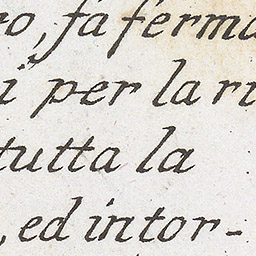 ro, fà ferma
i per la ri
tutta la
, ed intor-